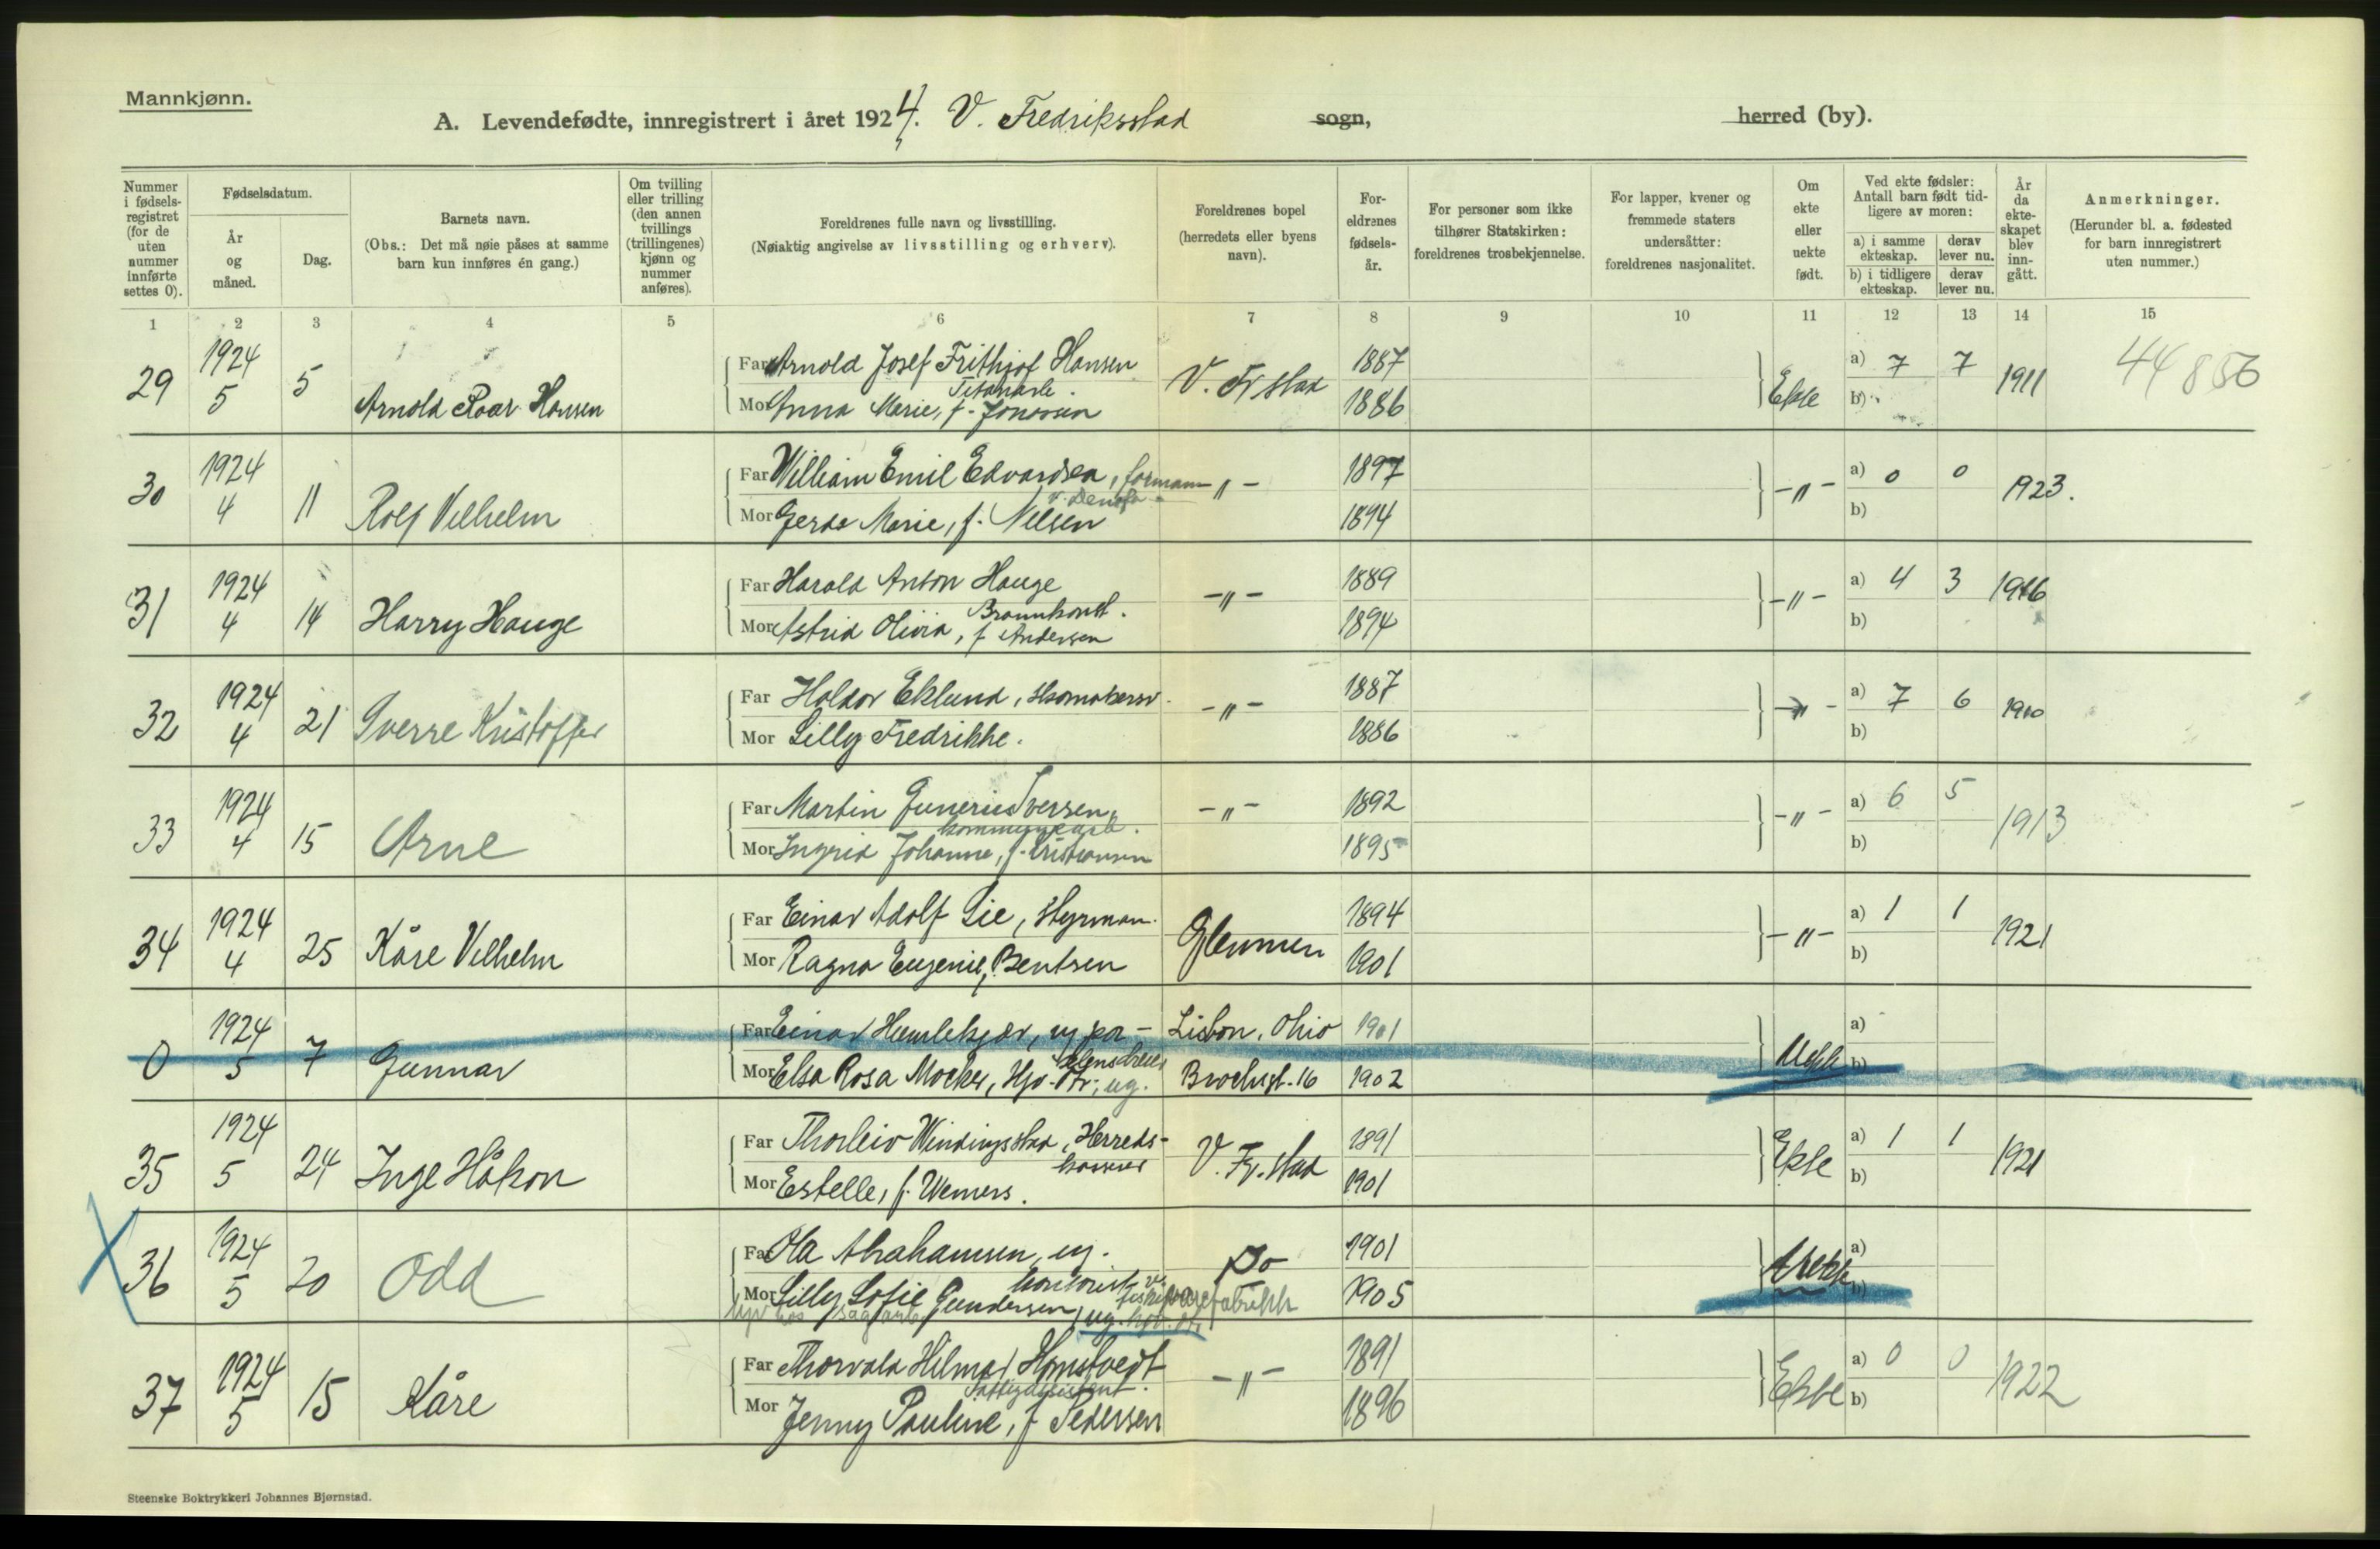 Mannkjønn.
A. Levendefødte, innregistrert i året 1924. V. Fredriksstad sogn, herred (by).
Nummer i fødsels-registret (for de uten nummer innførte settes 0).
Fødselsdatum.
År og måned.
Dag.
Barnets navn.
(Obs.: Det må nøie påses at samme barn kun innføres én gang.)
Om tvilling eller trilling (den annen tvillings (trillingenes) kjønn og nummer anføres).
Foreldrenes fulle navn og livsstilling.
(Nøiaktig angivelse av livsstilling og erhverv).
Foreldrenes bopel (herredets eller byens navn).
For-eldrenes fødsels-år.
For personer som ikke tilhører Statskirken: foreldrenes trosbekjennelse.
For lapper, kvener og fremmede staters undersåtter: foreldrenes nasjonalitet.
Om ekte eller uekte født.
Ved ekte fødsler: Antall barn født tid-ligere av moren:
a) i samme ekteskap. derav lever nu.
b) i tidligere ekteskap. derav lever nu.
År da ekte-skapet blev inn-gått.
Anmerkninger.
(Herunder bl. a. fødested for barn innregistrert uten nummer.)
1 2 3 4 5 6 7 8 9 10 11 12 13 14 15
29 1924 5 5 Arnold Roar Hansen
Far Arnold Josef Frithjof Hansen V. Fr.stad 1887 Ekte a) 7 7 1911 44856
Mor Anna Marie, f. 1886 b)
30 1924 4 11 Rolf Vilhelm
Far William Emil Edvardsen, formann -"- 1897 -"- a) 0 0 1923.
v. Denofa
Mor Gerda Marie, f. Nilsen 1894 b)
31 1924 4 14 Harry Hauge
Far Harald Anton Hauge -"- 1889 -"- a) 4 3 1916
Brannkonst.
Mor Astrid Olivia, f. Andersen 1894 b)
32 1924 4 21 Sverre Kristoffer
Far Haldor Eklund, skomakersv. -"- 1887 -"- a) 7 6 1910
Mor Lilly Fredrikke. 1886 b)
33 1924 4 15 Arne
Far Martin Gunerius Iversen, -"- 1892 -"- a) 6 5 1913
kommunearb.
Mor Ingrid Johanne, f. Kristiansen 1895 b)
34 1924 4 25 Kåre Vilhelm
Far Einar Adolf Lie, styrman. Glemmen 1894 -"- a) 1 1 1921
Mor Ragna Eugenie, Bentsen 1901 b)
0 1924 5 7 Gunnar
Far Einar Lisbon, Ohio 1901 Uekte a)
Mor Elsa Rosa ug. Brochsgt. 16 1902 b)
35 1924 5 24 Inge Håkon
Far Thorleiv Windingsstad, Herreds- V. Fr.stad 1891 Ekte a) 1 1 1921
kasserer
Mor Estelle, f. Wemers. 1901 b)
X 36 1924 5 20 Odd
Far Ola Abrahamsen, ug. Do 1901 Uekte a)
kontorist v.
Mor Lilly Sofie Gundersen, ug. 1905 b)
37 1924 5 15 Kåre
Far Thorvald Hilmar Homstvedt -"- 1891 Ekte a) 0 0 1922
Mor Jenny Pauline, f. Pedersen 1896 b)
Steenske Boktrykkeri Johannes Bjørnstad.